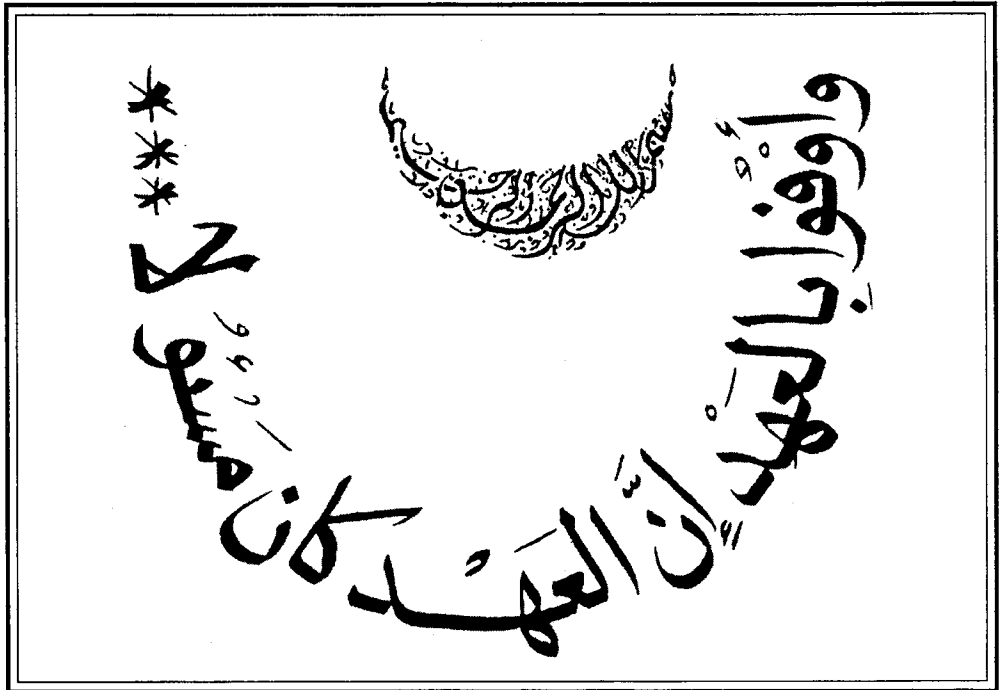 بسم الله الرحمن الرحيم
وأوفوا بالعهد إنّ العهد كان مسئولا
***